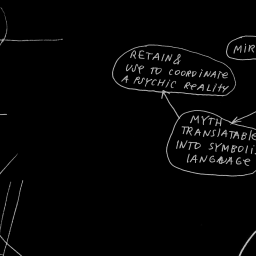 RETAIN &
USE TO COORDINATE
A PSYCHIC REALITY
MIR
MYTH
TRANSLATABLE
INTO SYMBOLI
LANGUAGE